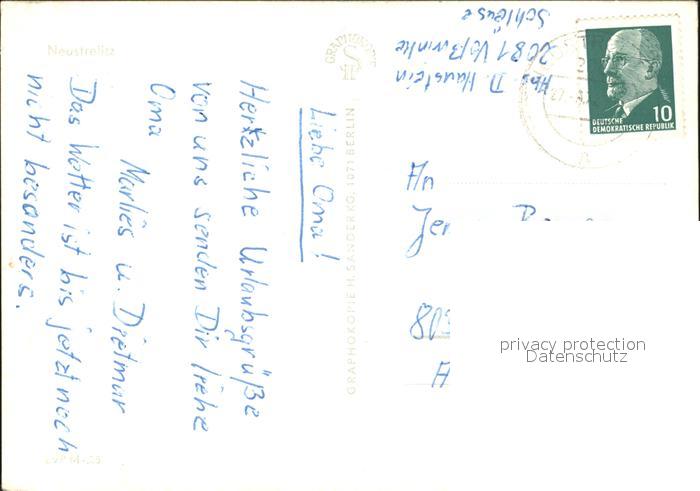 Neustrelitz
Liebe Oma!
Herzliche Urlaubsgrüße
von uns senden Dir liebe
Oma
Marlies u. Dietmar
Das Wetter ist bis jetzt noch
nicht besonders.
GRAPHOKOPIE H. SANDER KG, 1071 BERLIN
GRAPHOKOPIE
Abs. D. Haustein
2081 Voßwinkel
Schleuse
DEUTSCHE
DEMOKRATISCHE REPUBLIK
10
An
privacy protection
Datenschutz